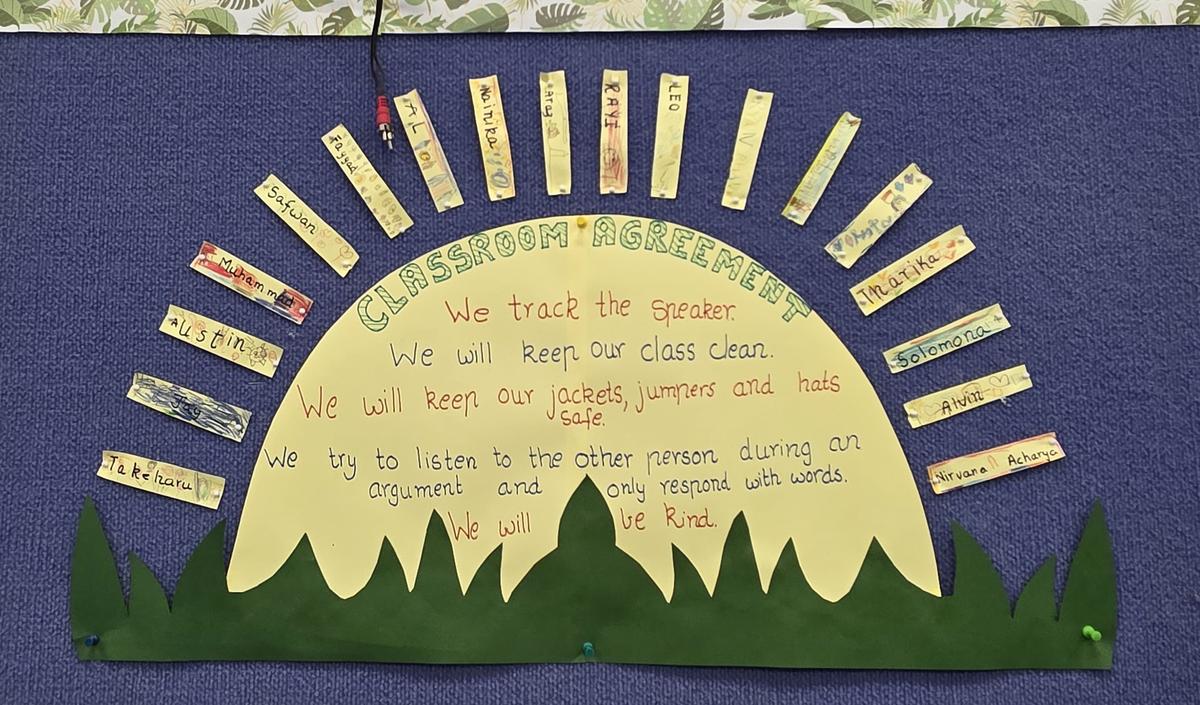 Takeharu
Jay
Austin
Muhammad
Safwan
Fayyad
AL
Nainika
RAYI
LEO
Marika
Solomona
Alvin
Nirvana Acharya
CLASSROOM AGREEMENT
We track the speaker.
We will keep our class clean.
We will keep our jackets, jumpers and hats
safe.
We try to listen to the other person during an
argument and only respond with words.
We will be kind.